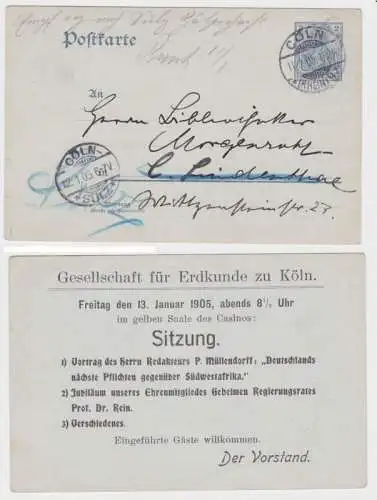 Postkarte
2
CÖLN
An
Herrn Bibliothekar
Morgenroth
C. Lindenthal
CÖLN
*SÜLZ*
23.
Gesellschaft für Erdkunde zu Köln.
Freitag den 13. Januar 1905, abends 8½ Uhr
im gelben Saale des Casinos:
Sitzung.
1) Vortrag des Herrn Redakteurs P. Müllendorff: „Deutschlands
nächste Pflichten gegenüber Südwestafrika.“
2) Jubiläum unseres Ehrenmitgliedes Geheimen Regierungsrates
Prof. Dr. Rein.
3) Verschiedenes.
Eingeführte Gäste willkommen.
Der Vorstand.